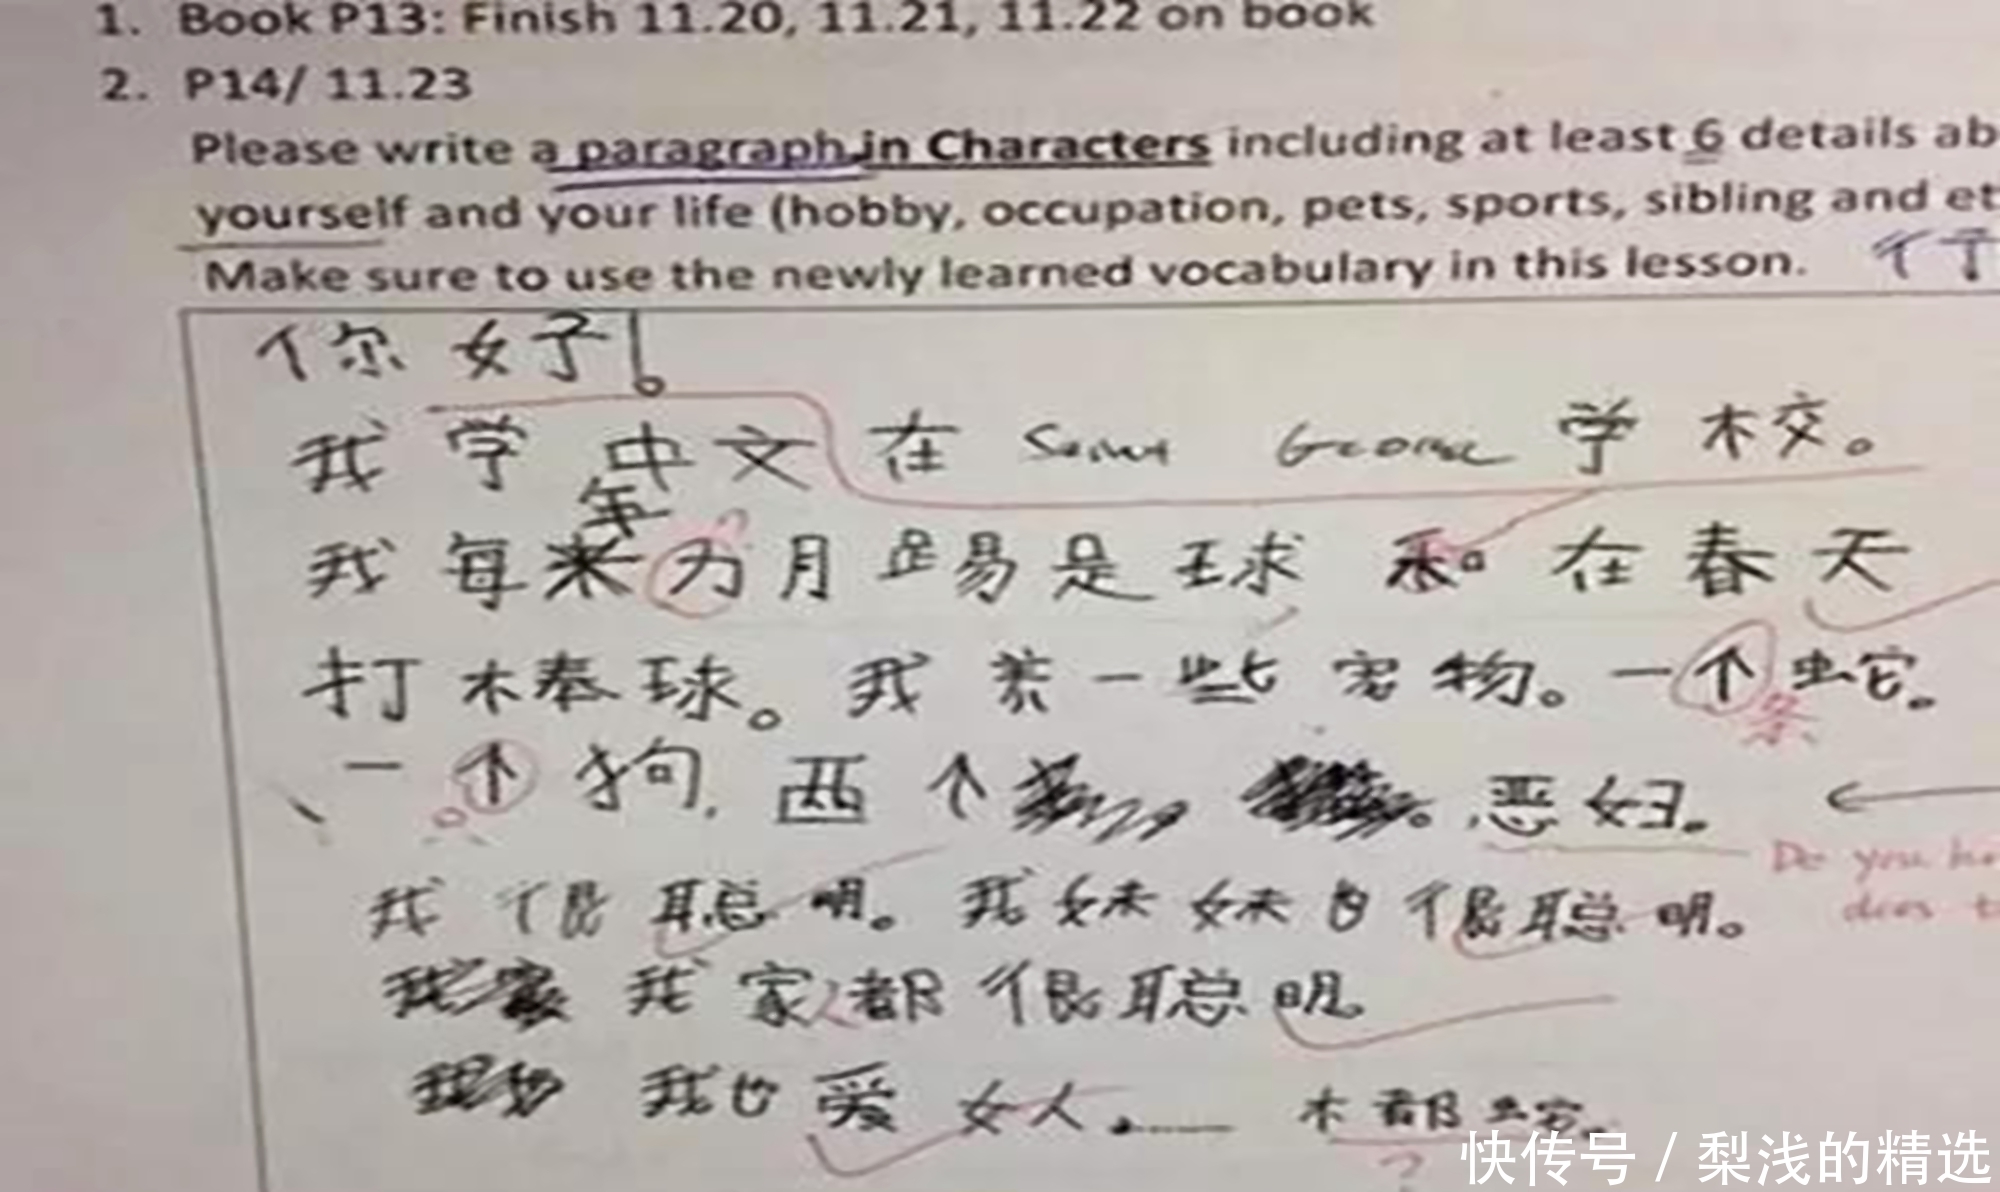 1. Book P13: Finish 11.20, 11.21, 11.22 on book
2. P14/ 11.23
Please write a paragraph in Characters including at least 6 details ab
yourself and your life (hobby, occupation, pets, sports, sibling and et
Make sure to use the newly learned vocabulary in this lesson. 行
你好!
我学中文在 Saint George 学校。
年
我每 为月踢是球 在春天
打棒球。我养一些宠物。一个蛇。
条
一个狗, 两个 恶妇。
只
Do you ha
我很聪明。我妹妹也很聪明。
does t
我家人都很聪明。
我也爱女人. 都蛇。
?
快传号 / 梨浅的精选